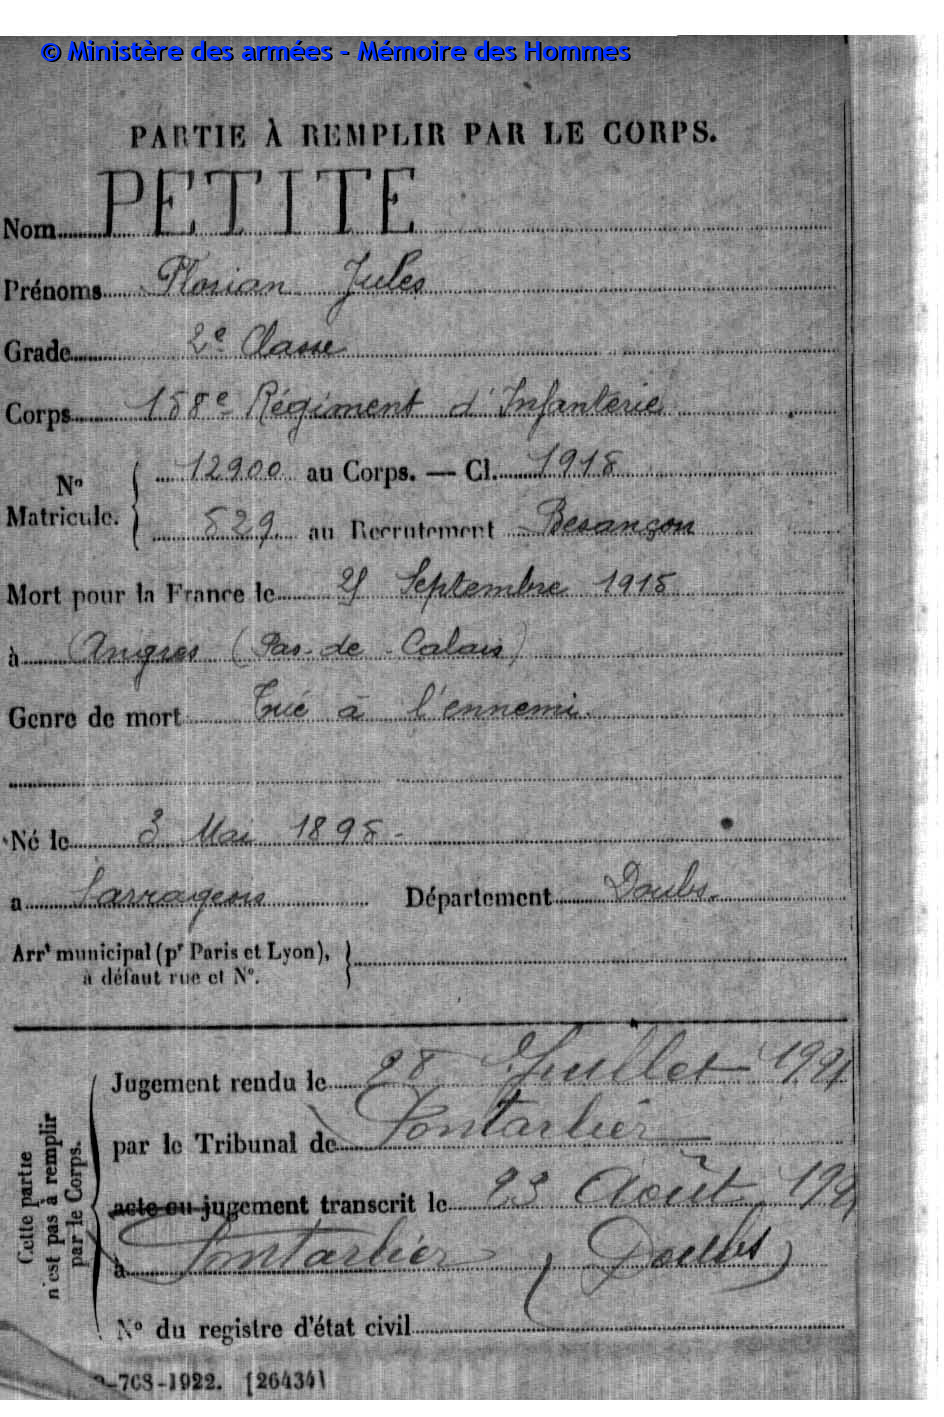 © Ministère des armées - Mémoire des Hommes
PARTIE À REMPLIR PAR LE CORPS.
Nom PETITE
Prénoms Florian Jules
Grade 2e Classe
Corps 158e Régiment d'Infanterie
No Matricule. { 12900 au Corps. — Cl. 1915
529 au Recrutement Besançon
Mort pour la France le 25 Septembre 1915
à Angres (Pas-de-Calais)
Genre de mort Tué à l'ennemi.
Né le 3 Mai 1895-
a Sarrageois Département Doubs.
Arrt municipal (pr Paris et Lyon), à défaut rue et No. }
Cette partie n'est pas à remplir par le Corps.
Jugement rendu le 28 Juillet 1921
par le Tribunal de Pontarlier
acte ou jugement transcrit le 23 Août 192
à Pontarlier (Doubs)
No du registre d'état civil
-708-1922. [26434]